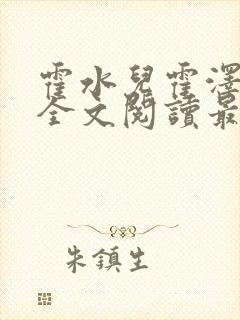 霍水兒霍澤
全文閱讀最
朱鎮生